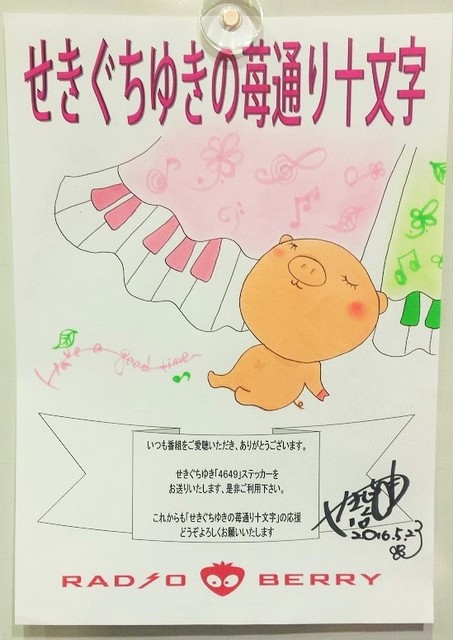 せきぐちゆきの苺通り十文字
Have a good time
いつも番組をご愛聴いただき、ありがとうございます。
せきぐちゆき「4649」ステッカーを
お送りいたします、是非ご利用下さい。
これからも「せきぐちゆきの苺通り十文字」の応援
どうぞよろしくお願いいたします
2016.5.23
RADIO BERRY